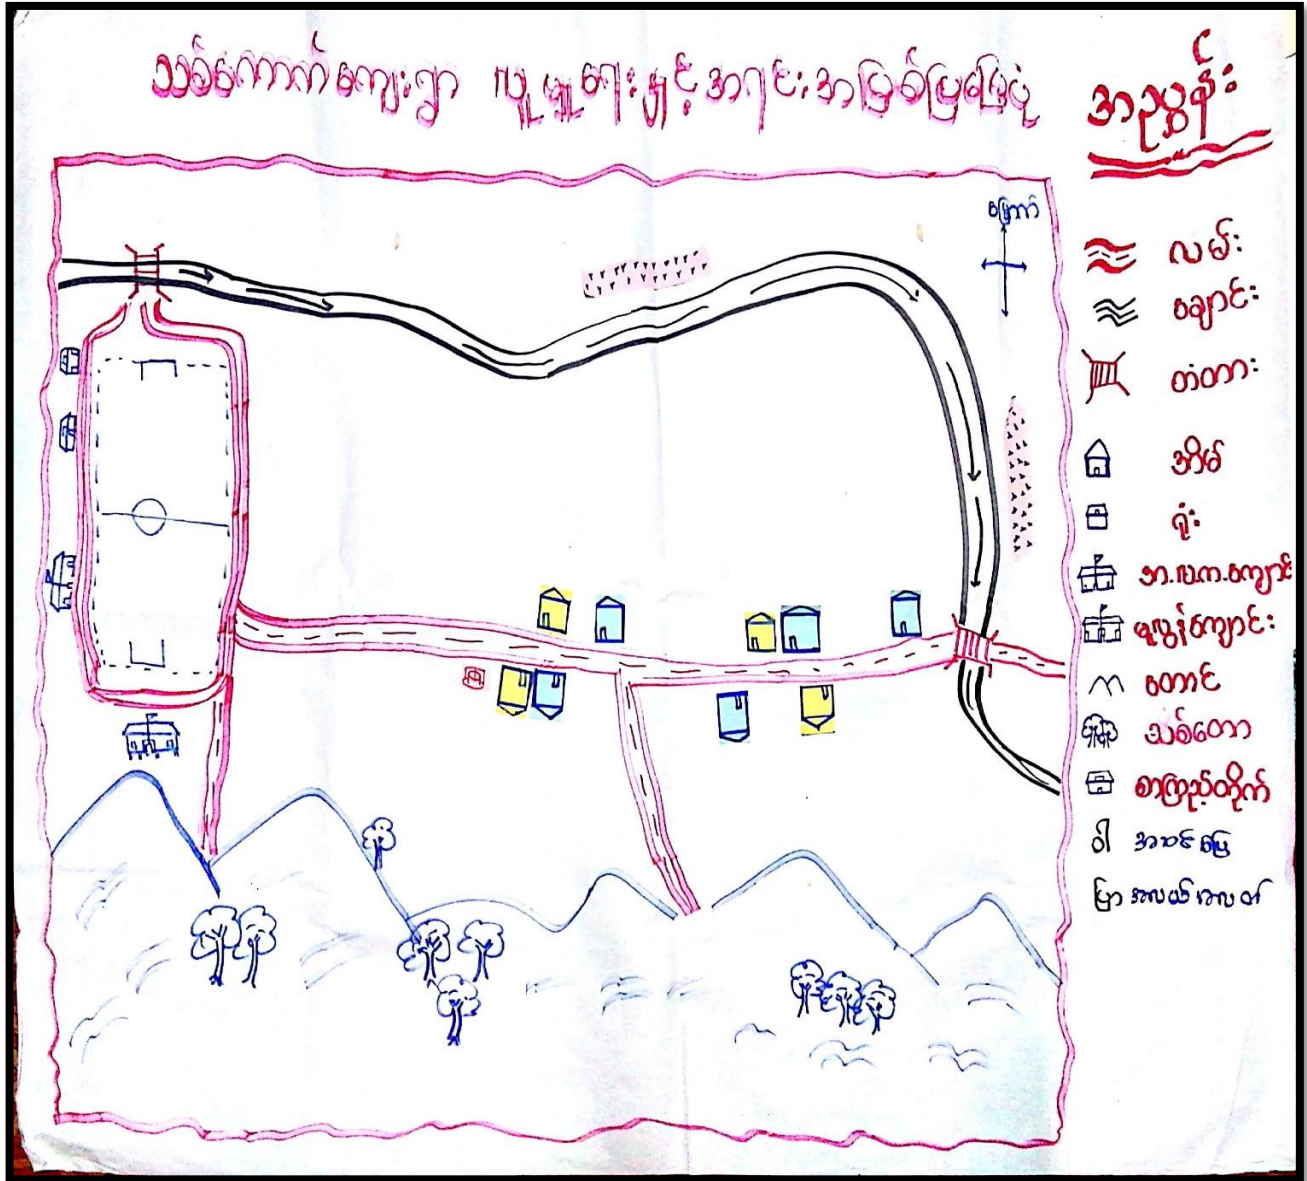 သစ်ကောက်ကျေးရွာ လူမှုရေးနှင့်အရင်းအမြစ်ပြမြေပုံ
အညွှန်း
မြောက်
လမ်း
ချောင်း
တံတား
အိမ်
ရုံး
အ.လ.က.ကျောင်း
မူလွန်ကျောင်း
တောင်
သစ်တော
စာကြည့်တိုက်
ဝါ
ပြာ အလယ်အလတ်